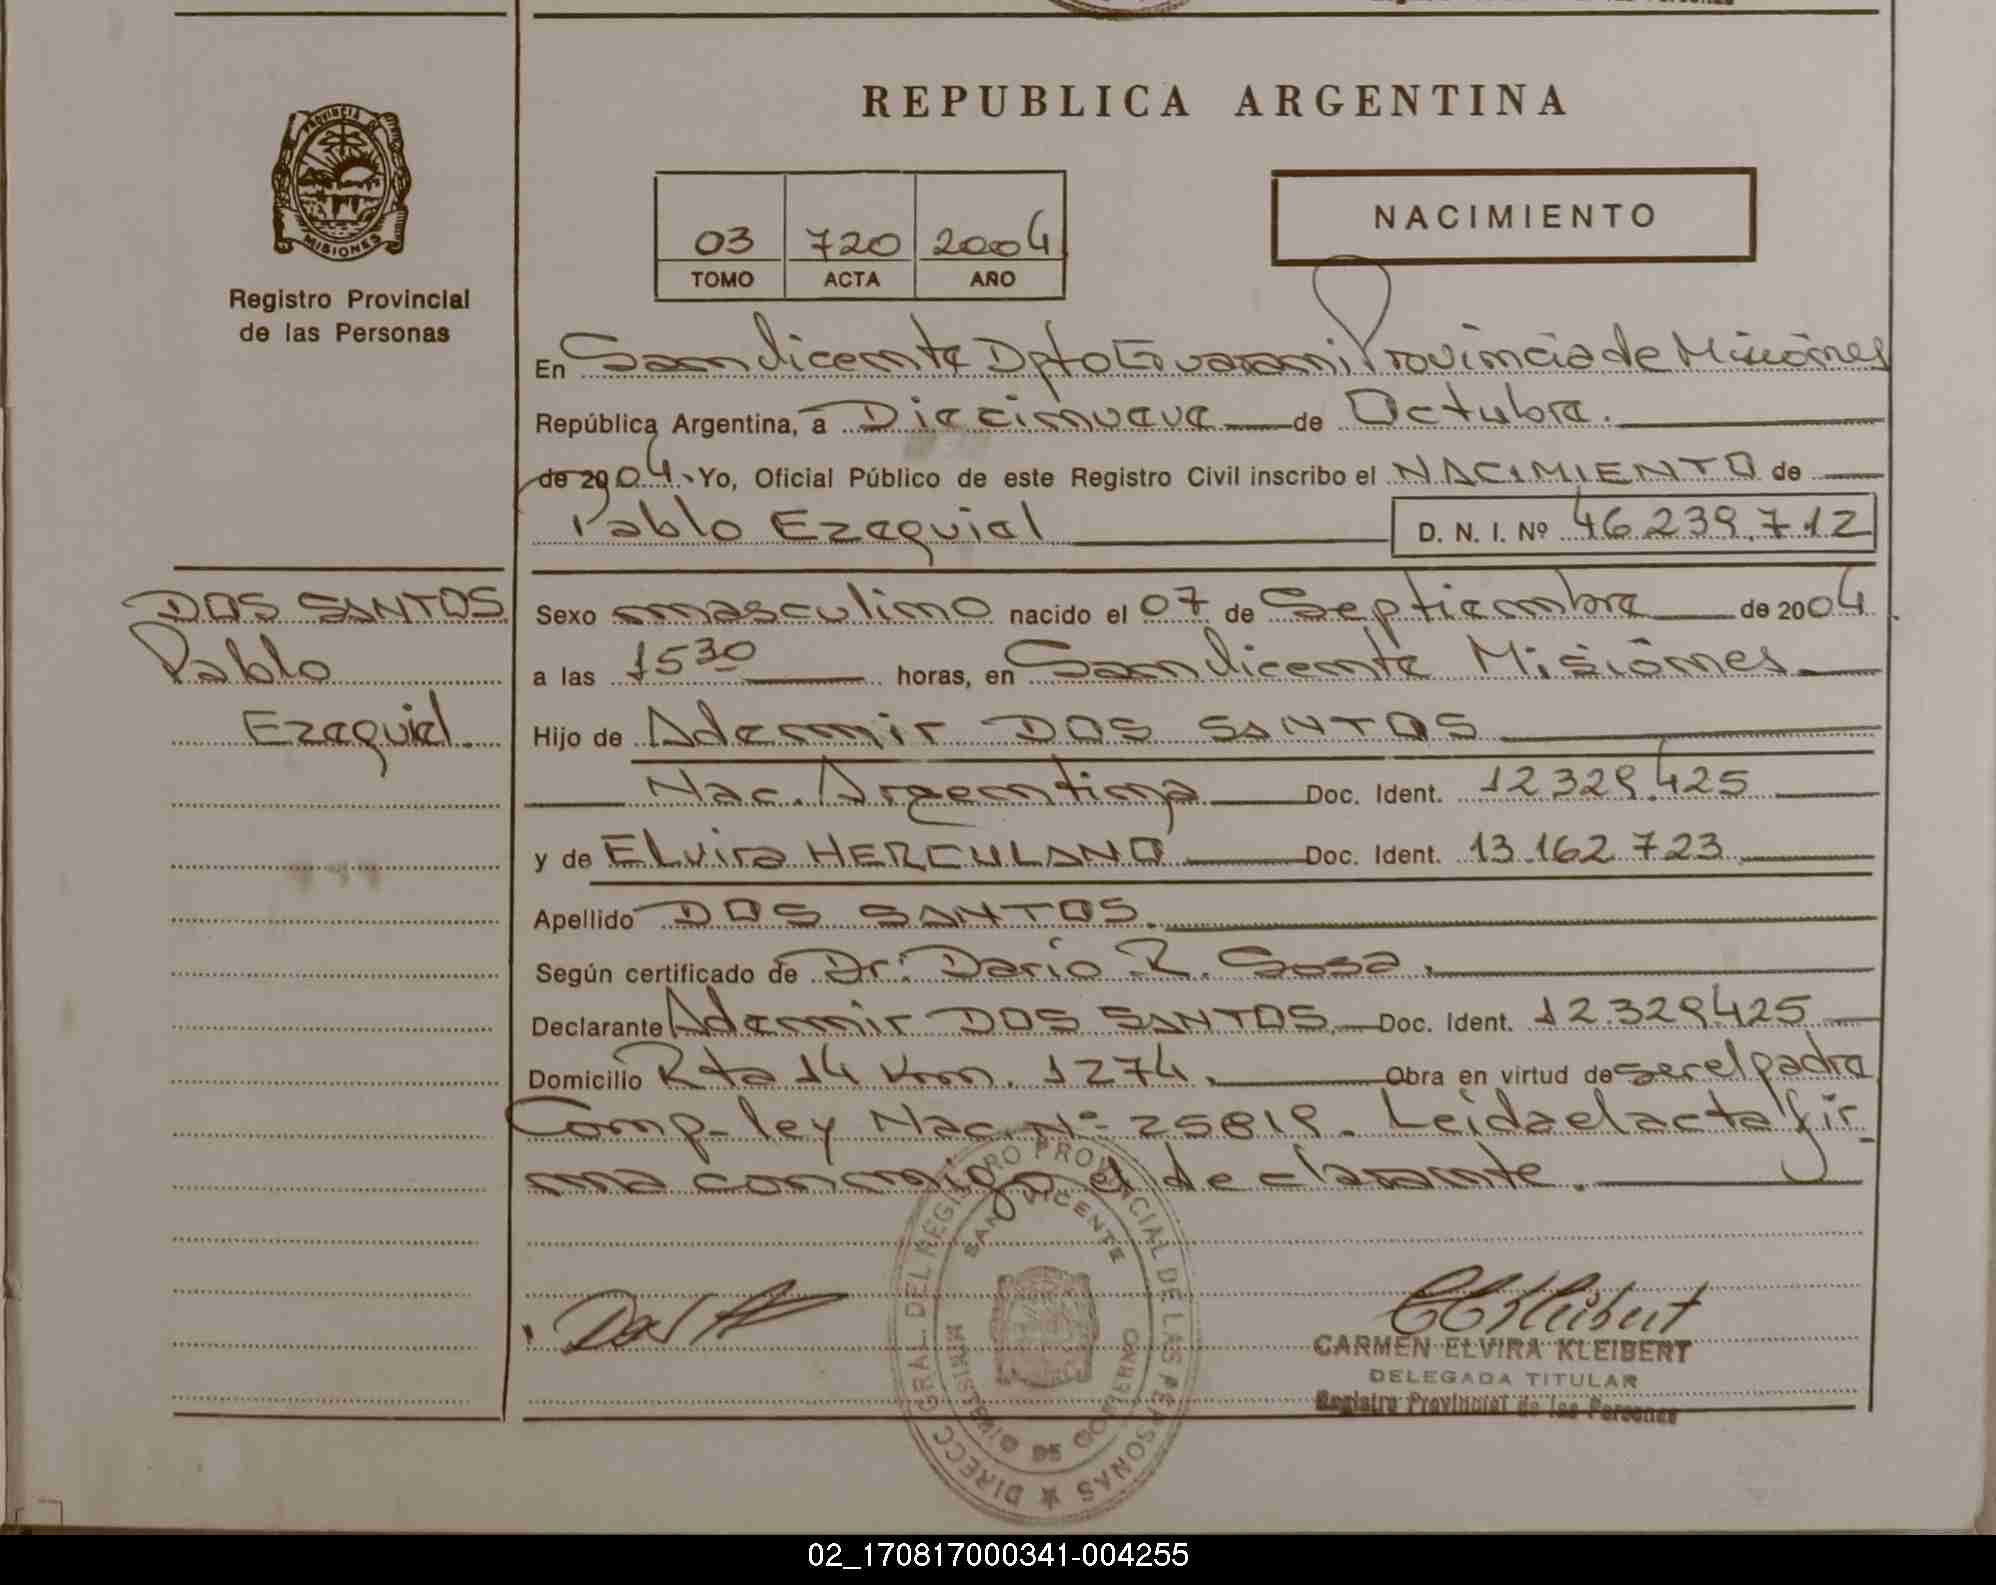 REPUBLICA ARGENTINA
PROVINCIA DE
MISIONES
Registro Provincial
de las Personas
03 720 2004
TOMO ACTA AÑO
NACIMIENTO
En San Vicente Dpto Guarani Provincia de Misiones
República Argentina, a Diecinueve de Octubre.
de 2004. Yo, Oficial Público de este Registro Civil inscribo el NACIMIENTO de
Pablo Ezequiel D. N. I. Nº 46.239.712
DOS SANTOS
Pablo
Ezequiel.
Sexo masculino nacido el 07 de Septiembre de 2004
a las 15 30 horas, en San Vicente Misiones
Hijo de Ademir DOS SANTOS
Nac. Argentina Doc. Ident. 12.329.425
y de Elvira HERCULANO Doc. Ident. 13.162.723
Apellido DOS SANTOS.
Según certificado de Dr. Dario R. Sosa.
Declarante Ademir DOS SANTOS. Doc. Ident. 12.329425
Domicilio Rta 14 Km. 1274. Obra en virtud de ser el padre
Comp- ley Nac. Nº 25819. Leida el acta fir-
ma conmigo el declarante.
DIRECC GRAL DEL REGISTRO PROVINCIAL DE LAS PERSONAS
SAN VICENTE
MINISTERIO DE GOBIERNO
CARMEN ELVIRA KLEIBERT
DELEGADA TITULAR
Registro Provincial de las Personas
02_170817000341-004255